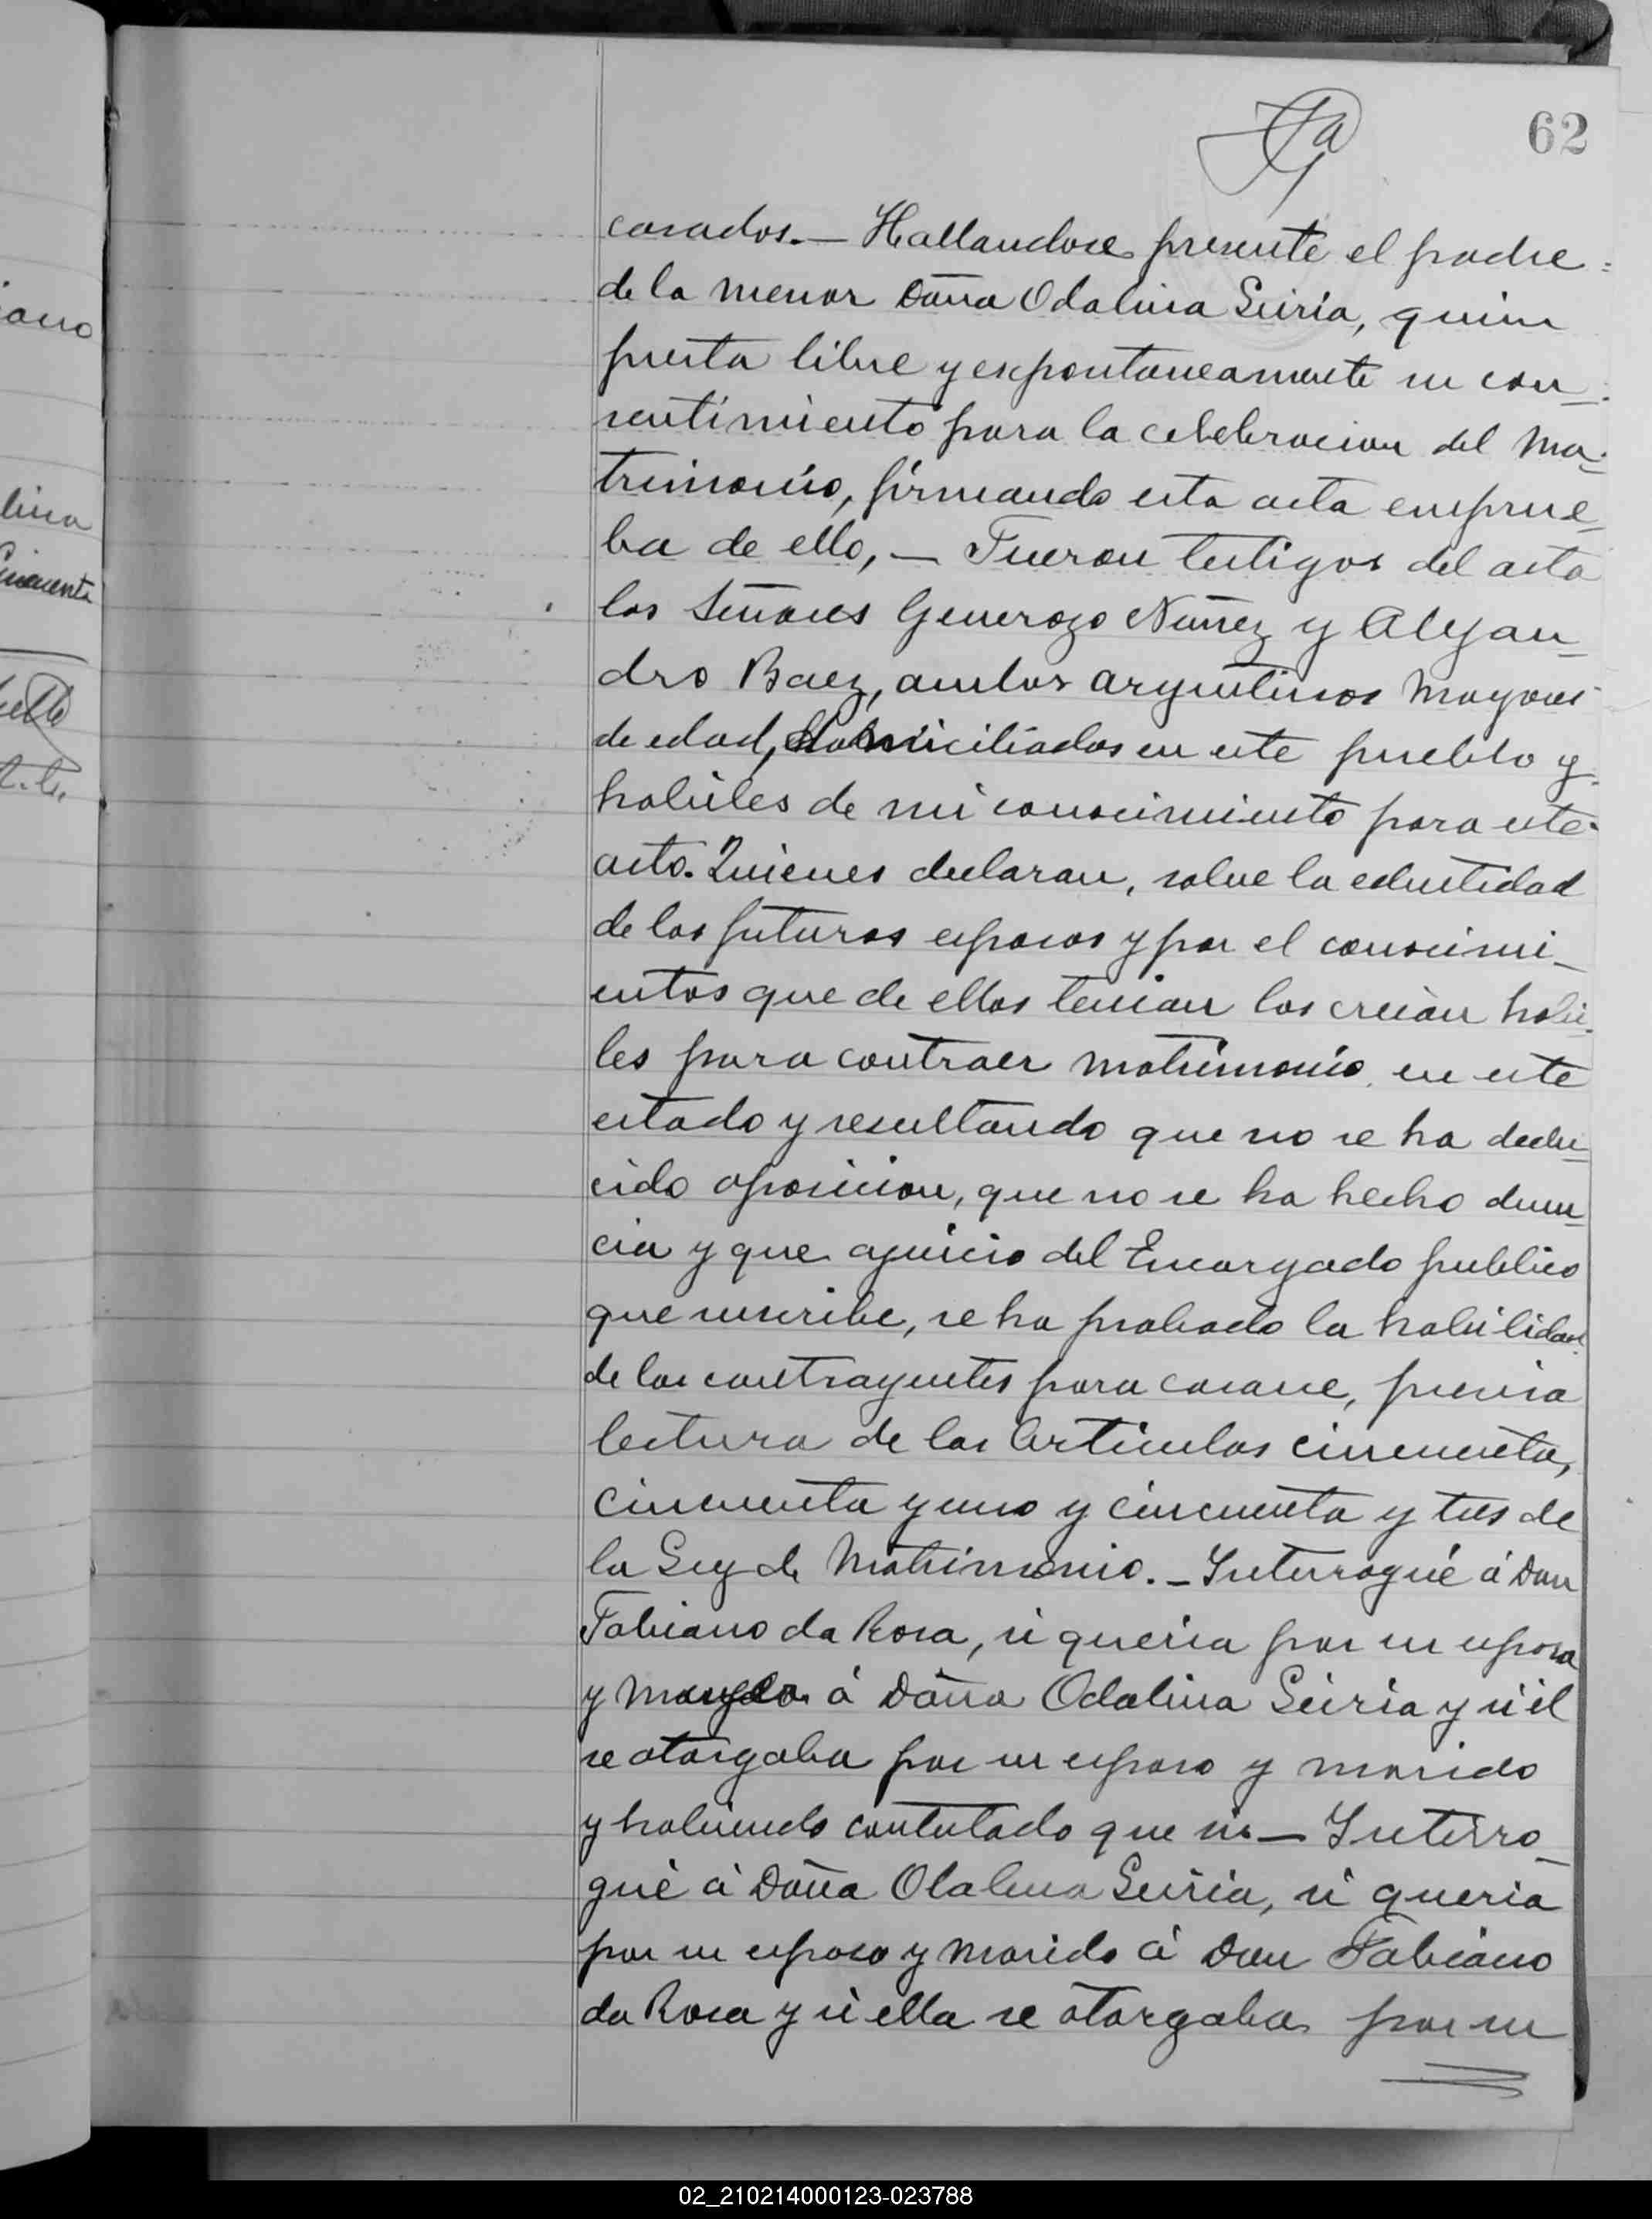 62
casados.— Hallandose presente el padre
de la menor Doña Odalina Seiria, quien
presta libre y expontaneamente su con-
sentimiento para la celebracion del ma-
trimonio, firmando esta acta en prue-
ba de ello,— Fueron testigos del acto
los Señores Generozo Nuñez y Alejan-
dro Baez, ambos argentinos mayores
de edad, domiciliados en este pueblo y
habiles de mi conocimiento para este
acto. Quienes declaran, sobre la edentidad
de los futuros esposos y por el conocimi-
entos que de ellos tenian los creian habi-
les para contraer matrimonio en este
estado y resultando que no se ha dedu-
cido oposicion, que no se ha hecho denun-
cia y que ajuicio del Encargado publico
que suscribe, se ha probado la habilidad
de los contrayentes para casarse, previa
lectura de los Articulos cincuenta,
cincuenta y uno y cincuenta y tres de
la Ley de Matrimonio.— Interrogué á Don
Fabiano da Rosa, si queria por su esposa
y á Doña Odalina Seiria y si él
se otorgaba por su esposo y marido
y habiendo contestado que si— Interro-
gué á Doña Olalina Seiria, si queria
por su esposo y marido á Don Fabiano
da Rosa y si ella se otorgaba por su
iano
lina
Cincuenta
02_210214000123-023788